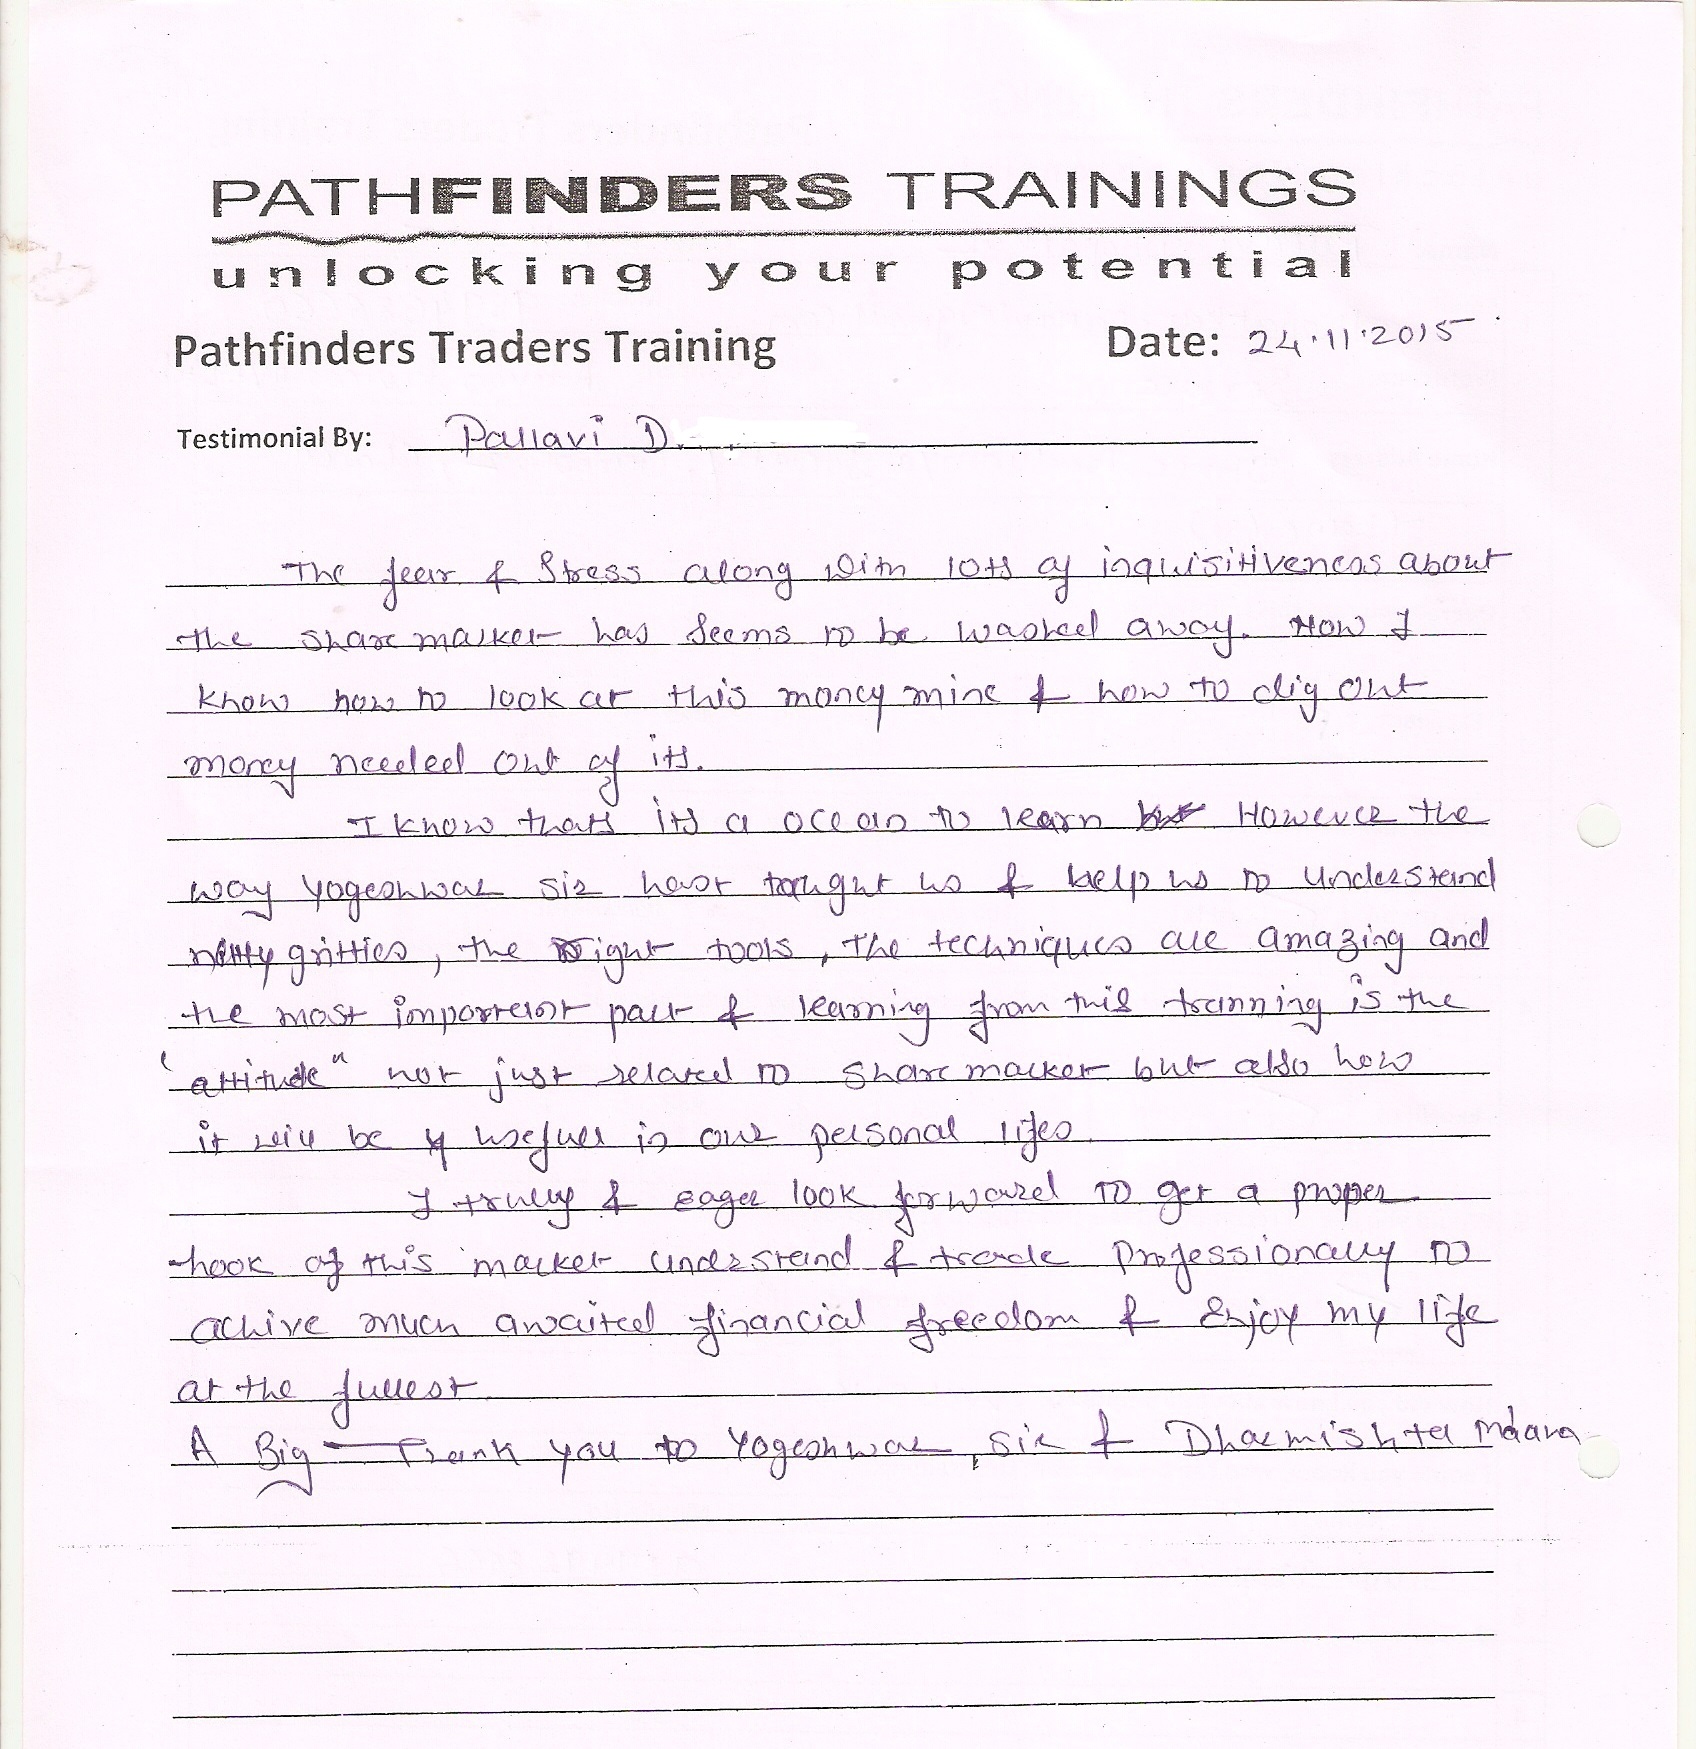 PATHFINDERS TRAININGS
unlocking your potential
Pathfinders Traders Training Date: 24.11.2015
Testimonial By: Pallavi D.
The fear & Stress along with lots of inquisitiveness about
the share market has seems to be washed away. Now I
know how to look at this money mine & how to dig out
money needed out of its.
I know thats its a ocean to learn but However the
way Yogeshwar sir has taught us & help us to understand
nitty gritties, the right tools, the techniques are amazing and
the most important part & learning from this tranning is the
"attitude" not just related to share market but also how
it will be usefull in our personal lifes
I trully & eager look forward to get a proper
hook of this market understand & trade Professionally to
achive much awaited financial freedom & Enjoy my life
at the fullest
A Big Thank you to Yogeshwar sir & Dharmishta